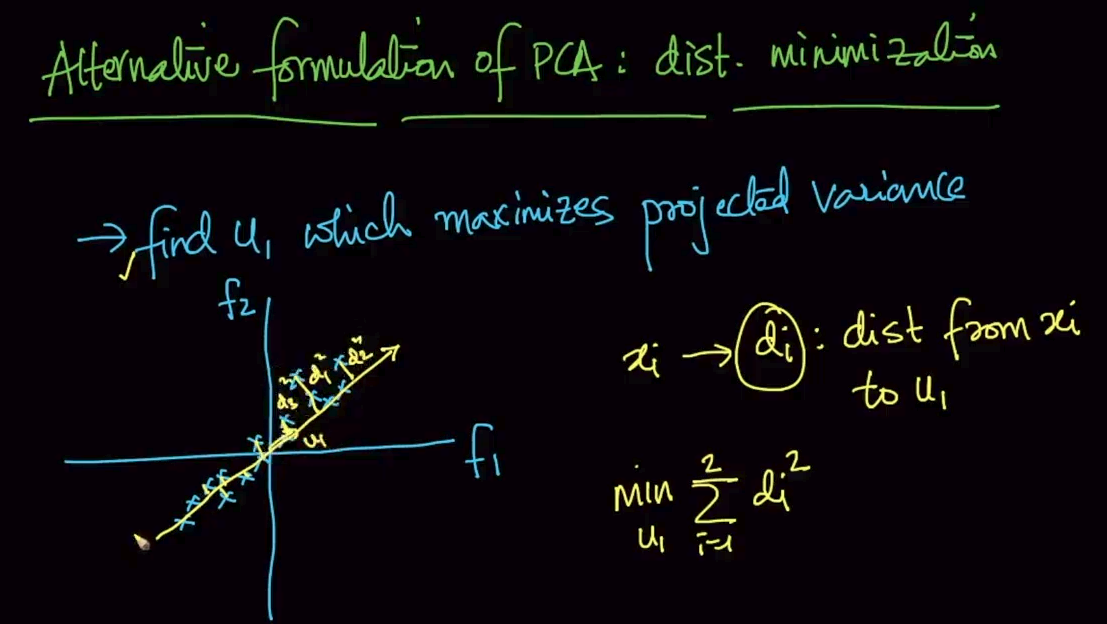 Alternative formulation of PCA : dist. minimization
→ find u₁ which maximizes projected variance
f₂
d₁²
d₂²
d₃²
u₁
f₁
xᵢ → dᵢ : dist from xᵢ
to u₁
min ∑ dᵢ²
u₁ i=1
2